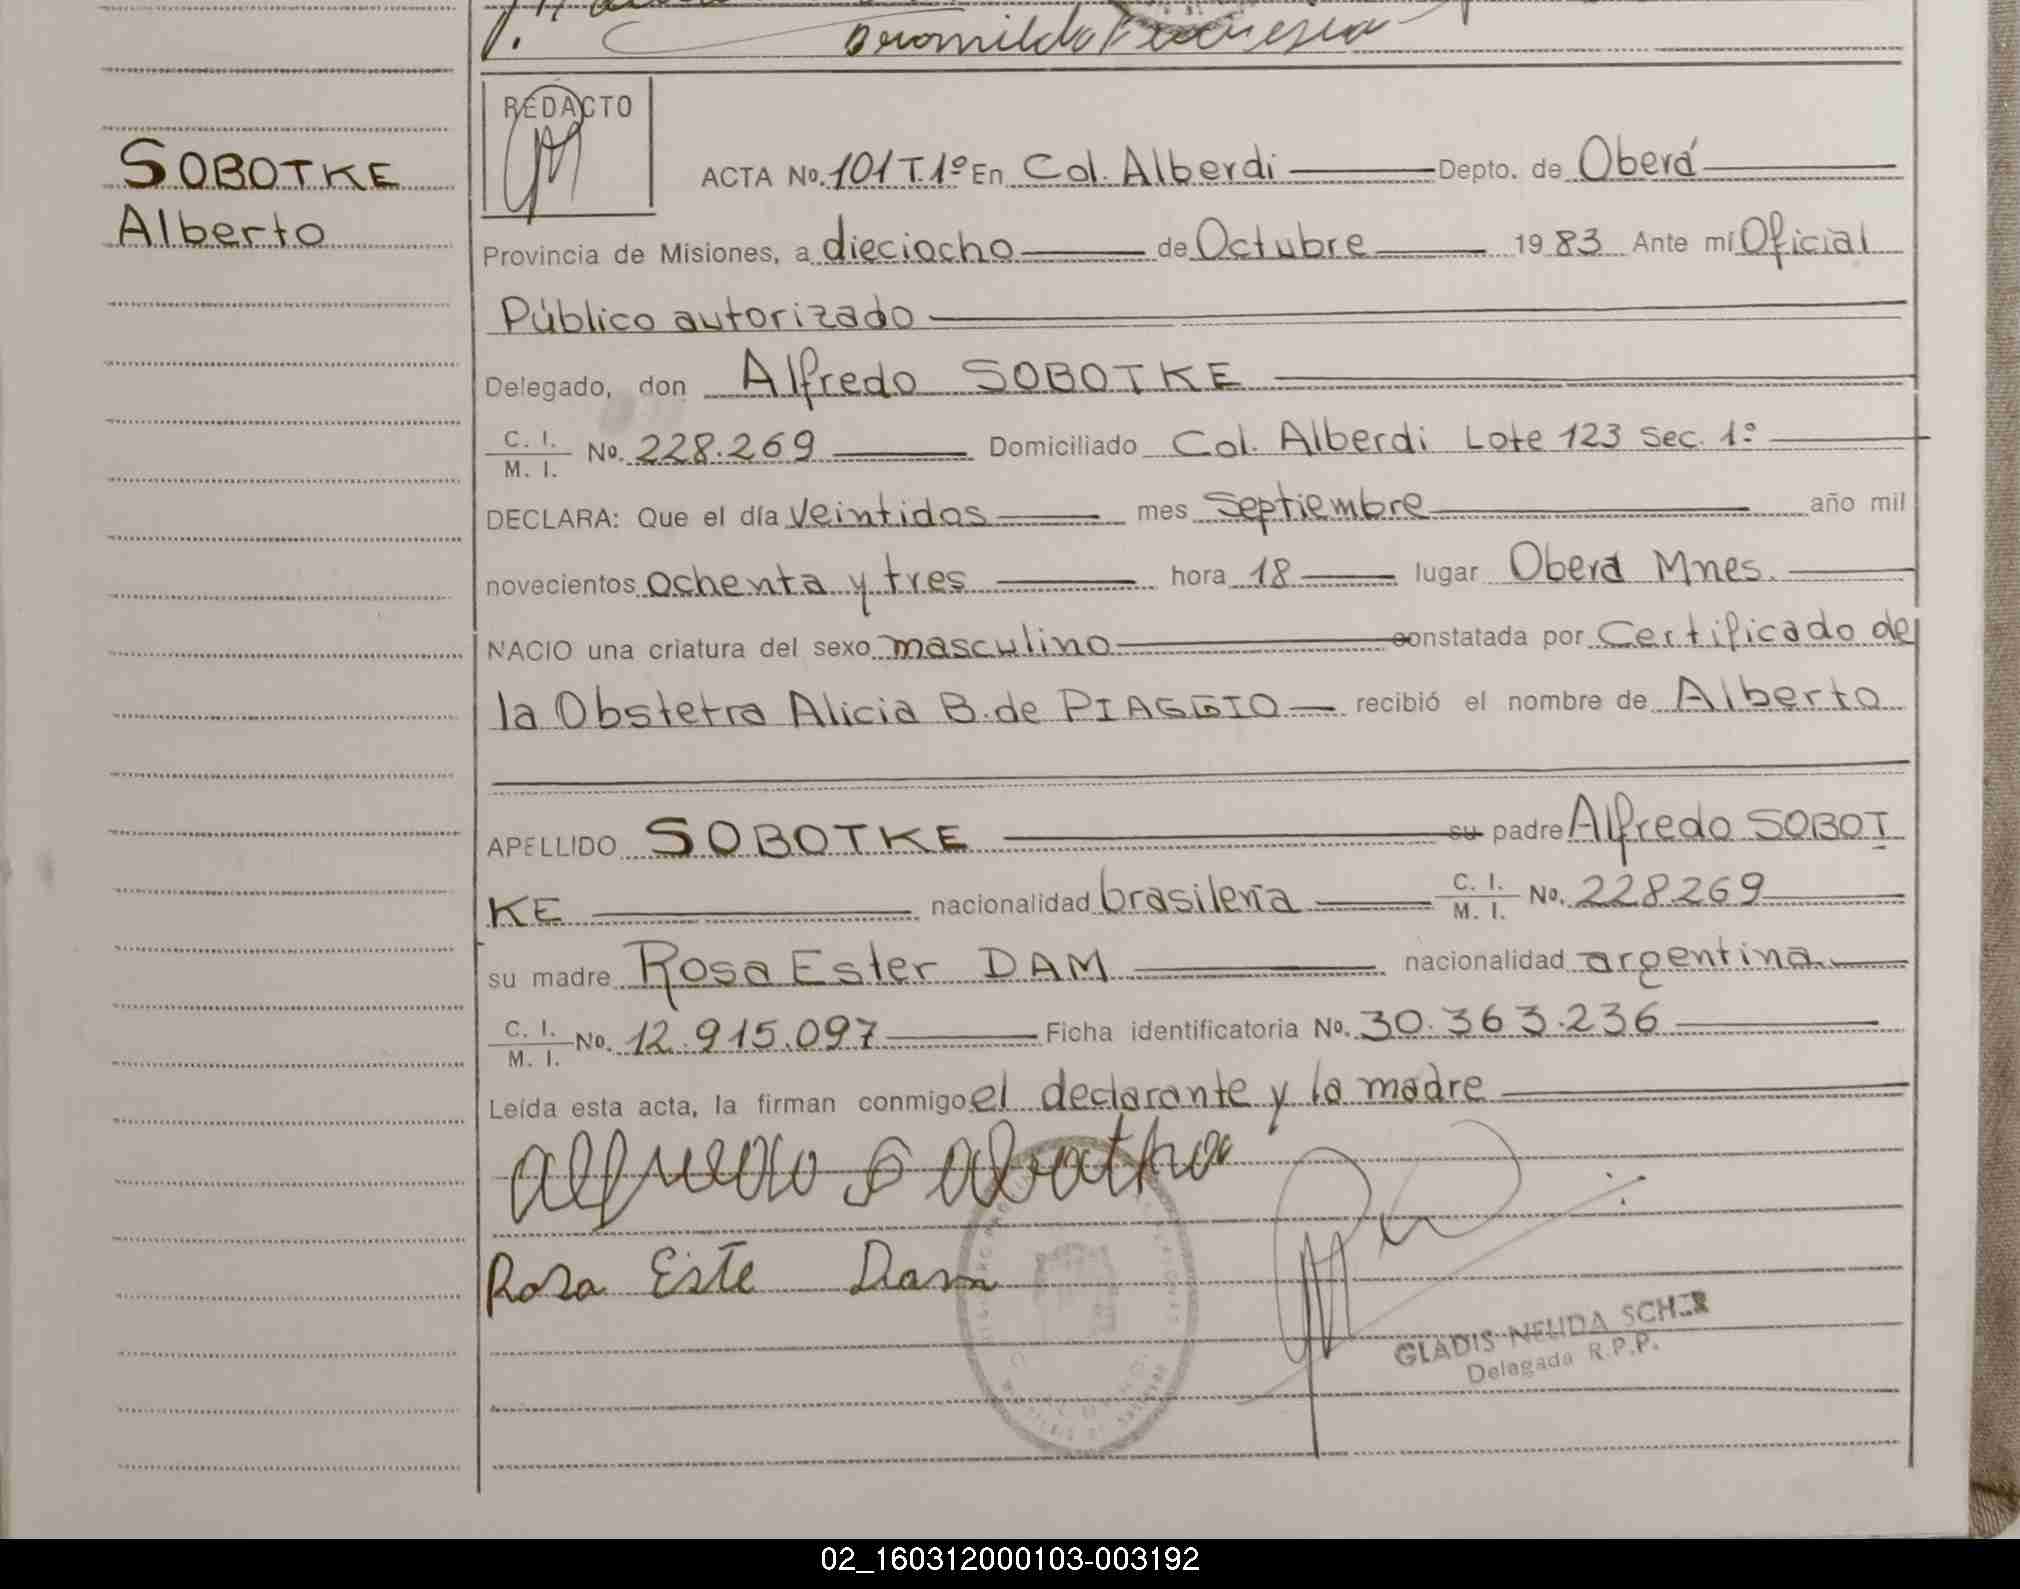 REDACTO
SOBOTKE
Alberto
ACTA No. 101 T.1º En Col. Alberdi Depto. de Oberá
Provincia de Misiones, a dieciocho de Octubre 1983 Ante mí Oficial
Público autorizado
Delegado, don Alfredo SOBOTKE
C. I. / M. I. No. 228.269 Domiciliado Col. Alberdi Lote 123 Sec. 1º
DECLARA: Que el día veintidos mes Septiembre año mil
novecientos ochenta y tres hora 18 lugar Oberá Mnes.
NACIO una criatura del sexo masculino constatada por Certificado de
la Obstetra Alicia B. de PIAGGIO recibió el nombre de Alberto
APELLIDO SOBOTKE su padre Alfredo SOBOT
KE nacionalidad brasileña C. I. / M. I. No. 228269
su madre Rosa Ester DAM nacionalidad argentina
C. I. / M. I. No. 12.915.097 Ficha identificatoria No. 30.363.236
Leída esta acta, la firman conmigo el declarante y la madre
Rosa Este Dam
GLADIS NELIDA
Delegada R.P.P.
02_160312000103-003192